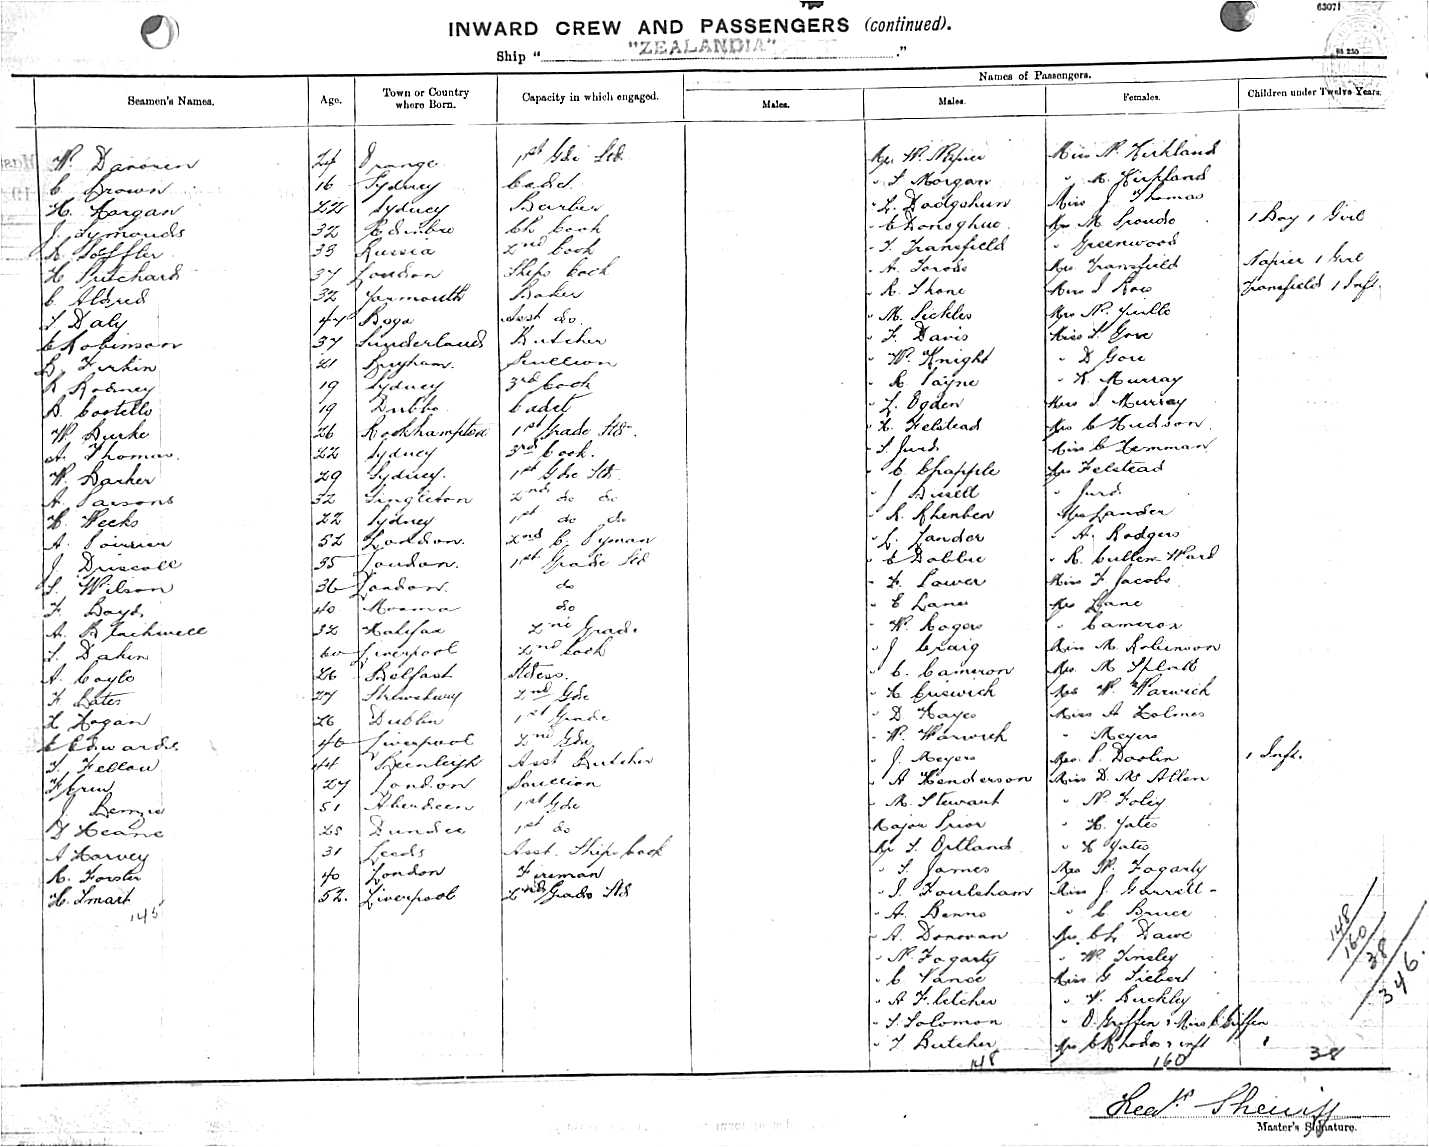 63071
INWARD CREW AND PASSENGERS (continued).
Ship " "ZEALANDIA" ."
Names of Passengers.
Seamen's Names. Age. Town or Country where Born. Capacity in which engaged. Males. Males. Females. Children under Twelve Years.
W. 24 Orange 1st Gde Std Mr W. Napier Miss N. Kirkland
C Brown 16 Sydney Cadet " S Morgan " M. Kirkland
H. Horgan 22 Sydney Barber " L. Dodgshun Miss J Thomas
J. Symonds 32 Ch Cook " C Donoghue Mrs M 1 Boy 1 Girl
R Soffler 33 Russia 2nd Cook " T Transfield " Greenwood
H Pritchard 37 London Ships Cook " A. Mrs Transfield Napier 1 Girl
C Aldred 32 Yarmouth Baker " R. Shone Miss I Ross Transfield 1 Inft.
T Daly 47 Bega Asst do. " M. Sickles Mrs N.
C Robinson 37 Sunderland Butcher " F Davis Miss S. Gore
B. Firkin 21 Scullion " W. Knight " D Gore
R Rodney 19 Sydney 3rd Cook " R Payne " K. Murray
B. Costello 19 Dubbo Cadet " L. Ogden Miss I Murray
W Burke 26 Rockhampton 1st Grade Std. " H. Felstead Mrs C Hudson.
A. Thomas. 22 Sydney 3rd Cook. " S Jurd Miss C Hemman
W. Barker 29 Sydney. 1st Gde Std. " C Chapple Mrs Felstead
A Parsons 32 Singleton 2nd do do " J Bisell " Jurd
H. Weeks 22 Sydney 1st do do " R. Mrs Lander
A. Poirrier 52 London. 2nd C. " L. Lander " A. Rodgers
J Driscoll 55 London. 1st Grade Std " C Dobbie " R. Cullen Ward
S. Wilson 36 London. do " F. Lower Miss F Jacobs
F. Boyd. 40 do " E Lane Mrs Lane
A. Blackwell 32 Halifax 2nd Grade " W. Rogers " Cameron
S. Dakin 60 Liverpool 2nd Cook " J Craig Miss M. Robinson
A Coyle 26 Belfast Stdess. " C. Cameron Mrs. M
F Bates 27 Shrewsbury 2nd Gde " H Criswick Mrs W. Warwick
H Hogan 26 Dublin 1st Grade " D Hayes Miss A Holmes
E Edwards. 46 Liverpool 2nd Gde " W. Warwick " Meyers
T. Fellow 44 Asst Butcher " J. Meyers Mrs. P. Doolin 1 Inft.
F Crew 27 London Scullion " A Henderson Miss D. McAllen
J Benzie 51 Aberdeen 1st Gde " M. Stewart " N. Foley
D Keane 25 Dundee 1st do Major Prior " H. Yates
A Harvey 31 Leeds Asst. Ships Cook Mr S. Ortland " K Yates
R. Forster 40 London Fireman " S. James Mrs W. Fogarty
H. Smart 52. Liverpool 2nd Grade Std " J. Foulsham Miss J Garrett
145 " A. Benns " C. Bruce
" A. Donovan Mrs Ch Dawe
" N. Fogarty " W. Tinsley
" C Vance Miss G Siebert
" A Fletcher " V. Buckley
" S. Solomon " O. Griffen & Miss C. Griffen
" T Butcher Mrs C Rhodes & inft 1
148 160 38
148/160/38/346.
Sheriff
Master's Signature.